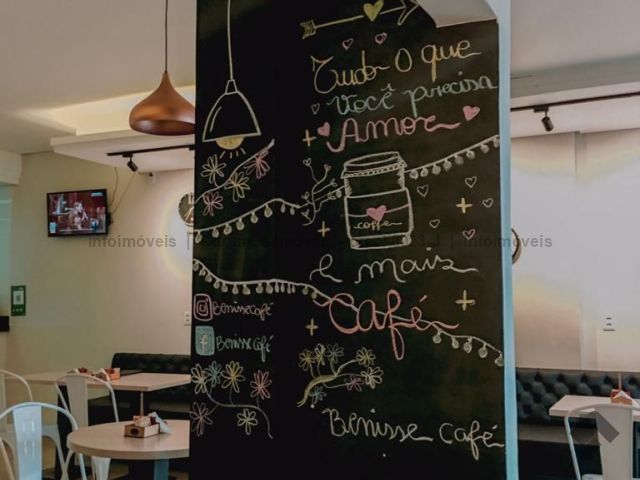 Tudo o que
Você precisa
Amor
coffe
e mais
Café
BenisseCafé
BenisseCafé
Benisse Café
infoimóveis
infoimóveis